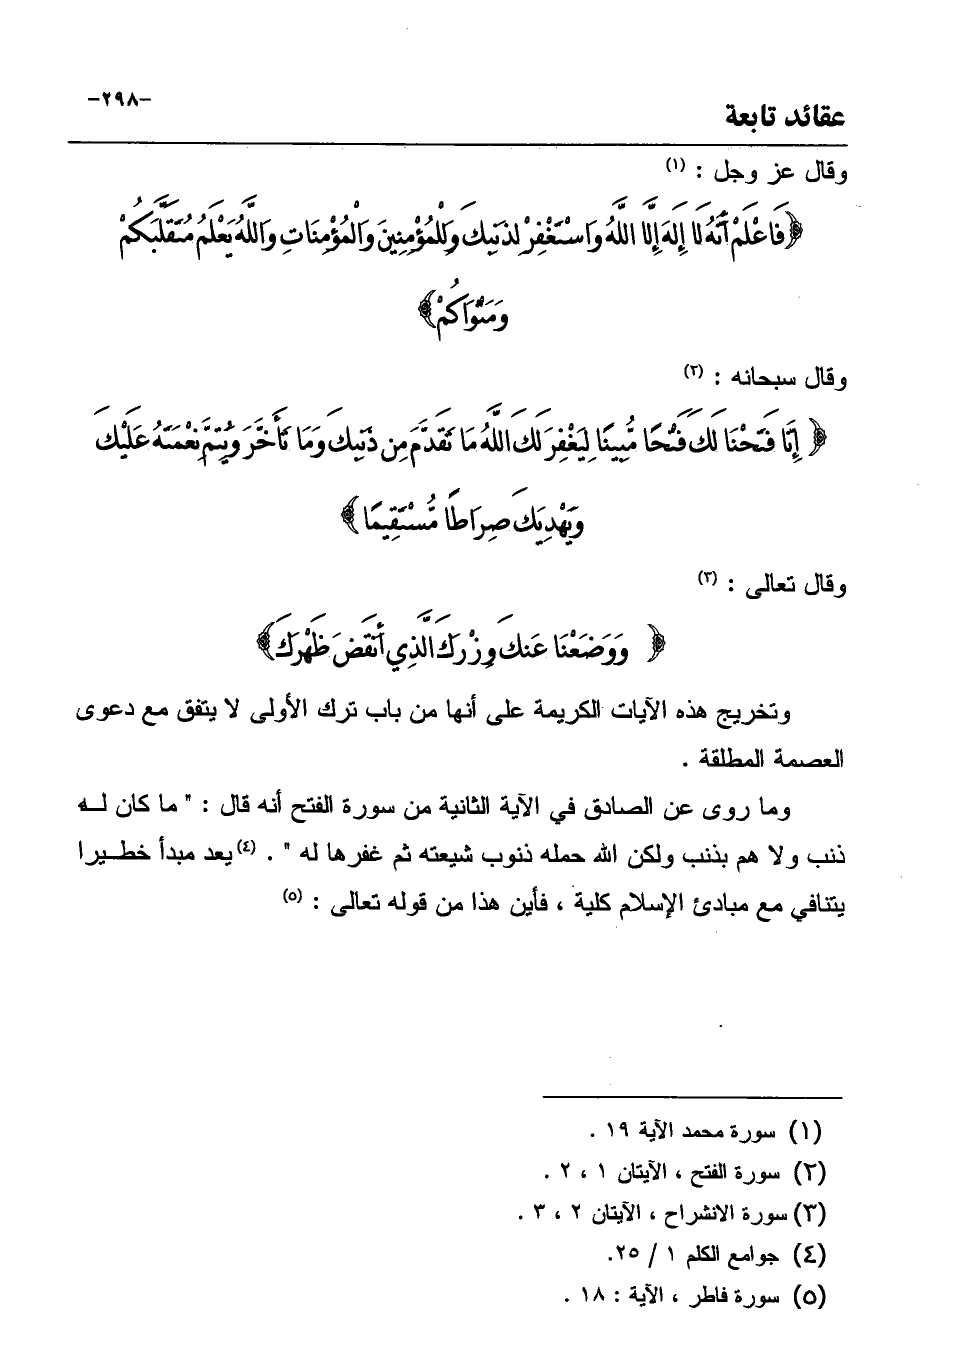 -٢٩٨-
عقائد تابعة
وقال عز وجل : (١)
﴿فَاعْلَمْ أَنَّهُ لَا إِلَهَ إِلَّا اللَّهُ وَاسْتَغْفِرْ لِذَنبِكَ وَلِلْمُؤْمِنِينَ وَالْمُؤْمِنَاتِ وَاللَّهُ يَعْلَمُ مُتَقَلَّبَكُمْ
وَمَثْوَاكُمْ﴾
وقال سبحانه : (٢)
﴿ إِنَّا فَتَحْنَا لَكَ فَتْحًا مُّبِينًا لِيَغْفِرَ لَكَ اللَّهُ مَا تَقَدَّمَ مِن ذَنبِكَ وَمَا تَأَخَّرَ وَيُتِمَّ نِعْمَتَهُ عَلَيْكَ
وَيَهْدِيَكَ صِرَاطًا مُّسْتَقِيمًا ﴾
وقال تعالى : (٣)
﴿ وَوَضَعْنَا عَنكَ وِزْرَكَ الَّذِي أَنقَضَ ظَهْرَكَ﴾
وتخريج هذه الآيات الكريمة على أنها من باب ترك الأولى لا يتفق مع دعوى
العصمة المطلقة .
وما روى عن الصادق في الآية الثانية من سورة الفتح أنه قال : " ما كان لــه
ذنب ولا هم بذنب ولكن الله حمله ذنوب شيعته ثم غفرها له " . (٤) يعد مبدأ خطــيرا
يتنافي مع مبادئ الإسلام كلية ، فأين هذا من قوله تعالى : (٥)
(١) سورة محمد الآية ١٩ .
(٢) سورة الفتح ، الآيتان ١ ، ٢ .
(٣) سورة الانشراح ، الآيتان ٢ ، ٣ .
(٤) جوامع الكلم ١ / ٢٥.
(٥) سورة فاطر ، الآية : ١٨ .